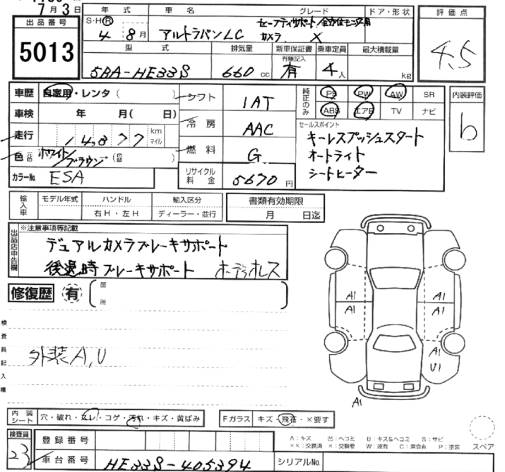 7月3日
出品番号
5013
年式 車名 グレード ドア・形状
S・H・R 4年8月 アルトラパンLC X
型式 排気量 新車保証書 乗車定員 最大積載量
5BA-HE33S 660cc 有 4人 kg
評価点
4.5
車歴 自家用・レンタ( )
車検 年 月( )
走行 14877 km マイル
色 ホワイト/ブラウン
カラーNo ESA
シフト 1AT
冷房 AAC
燃料 G
リサイクル料金 5670円
純正のみ PS PW AW SR
ABS エアB TV ナビ
セールスポイント
キーレスプッシュスタート
オートライト
シートヒーター
内装評価
b
輸入車 モデル年式 ハンドル 輸入区分
年 右H・左H ディーラー・並行
書類有効期限
月 日迄
出品店申告欄
※注意事項等記載
デュアルカメラブレーキサポート
後退時ブレーキサポート
修復歴 有 箇所
検査員記入欄
外装A,U
A1 A1
A1 A1
U1
A1
内装シート 穴・破れ・スレ・コゲ・汚れ・キズ・黄ばみ
Fガラス キズ・飛石・×要す
検査員
23
登録番号
車台番号 HE33S-405394
シリアルNo.
スペア